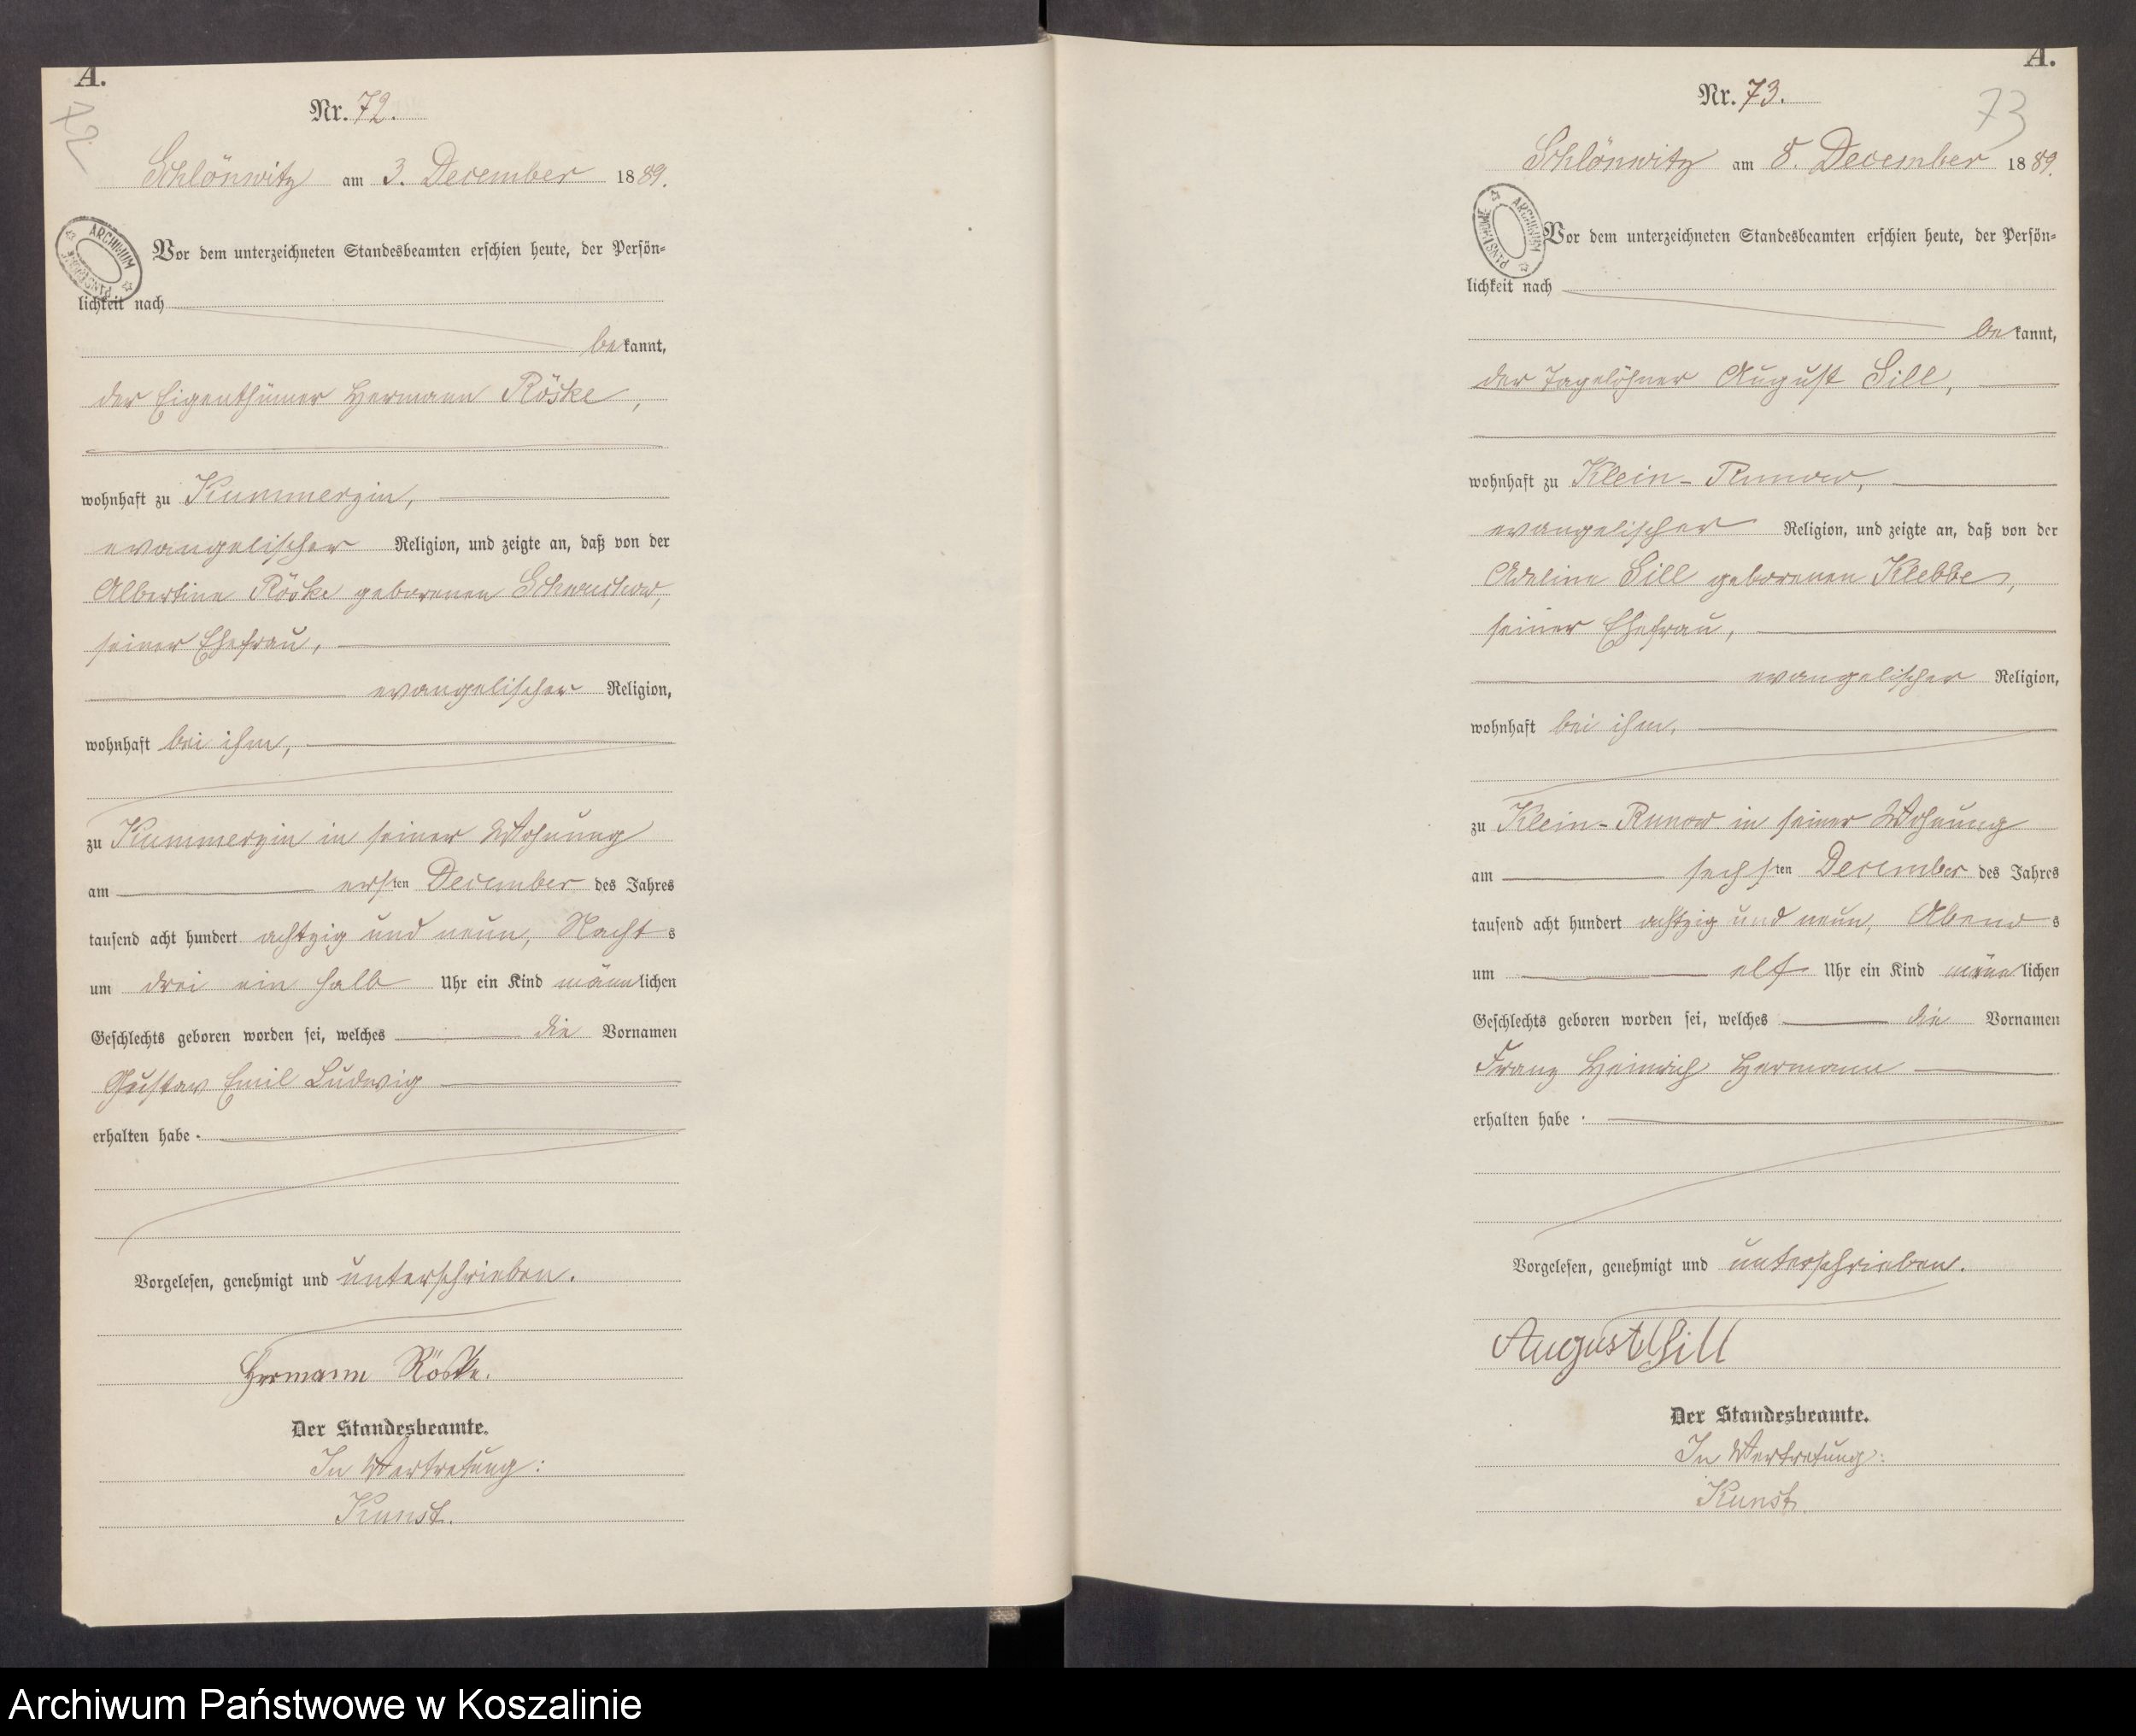 A.
72
Nr. 72.
Schlönwitz am 3. December 1889.
ARCHIWUM PAŃSTWOWE
Vor dem unterzeichneten Standesbeamten erschien heute, der Persön-
lichkeit nach
bekannt,
der Eigenthümer Hermann Röske,
wohnhaft zu Kummerzin,
evangelischer Religion, und zeigte an, daß von der
Albertine Röske geborenen
seiner Ehefrau,
evangelischer Religion,
wohnhaft bei ihm,
zu Kummerzin in seiner Wohnung
am ersten December des Jahres
tausend acht hundert achtzig und neun, Nachts
um drei ein halb Uhr ein Kind männlichen
Geschlechts geboren worden sei, welches die Vornamen
Gustav Emil Ludwig
erhalten habe.
Vorgelesen, genehmigt und unterschrieben.
Hermann Röske.
Der Standesbeamte.
In Vertretung:
Kunst.
A.
73
Nr. 73.
Schlönwitz am 8. December 1889.
ARCHIWUM PAŃSTWOWE
Vor dem unterzeichneten Standesbeamten erschien heute, der Persön-
lichkeit nach
bekannt,
der Tagelöhner August Sill,
wohnhaft zu Klein-Runow,
evangelischer Religion, und zeigte an, daß von der
Adeline Sill geborenen Klebbe,
seiner Ehefrau,
evangelischer Religion,
wohnhaft bei ihm,
zu Klein-Runow in seiner Wohnung
am sechsten December des Jahres
tausend acht hundert achtzig und neun, Abends
um elf Uhr ein Kind männlichen
Geschlechts geboren worden sei, welches die Vornamen
Franz Heinrich Hermann
erhalten habe.
Vorgelesen, genehmigt und unterschrieben.
August Sill
Der Standesbeamte.
In Vertretung:
Kunst.
Archiwum Państwowe w Koszalinie